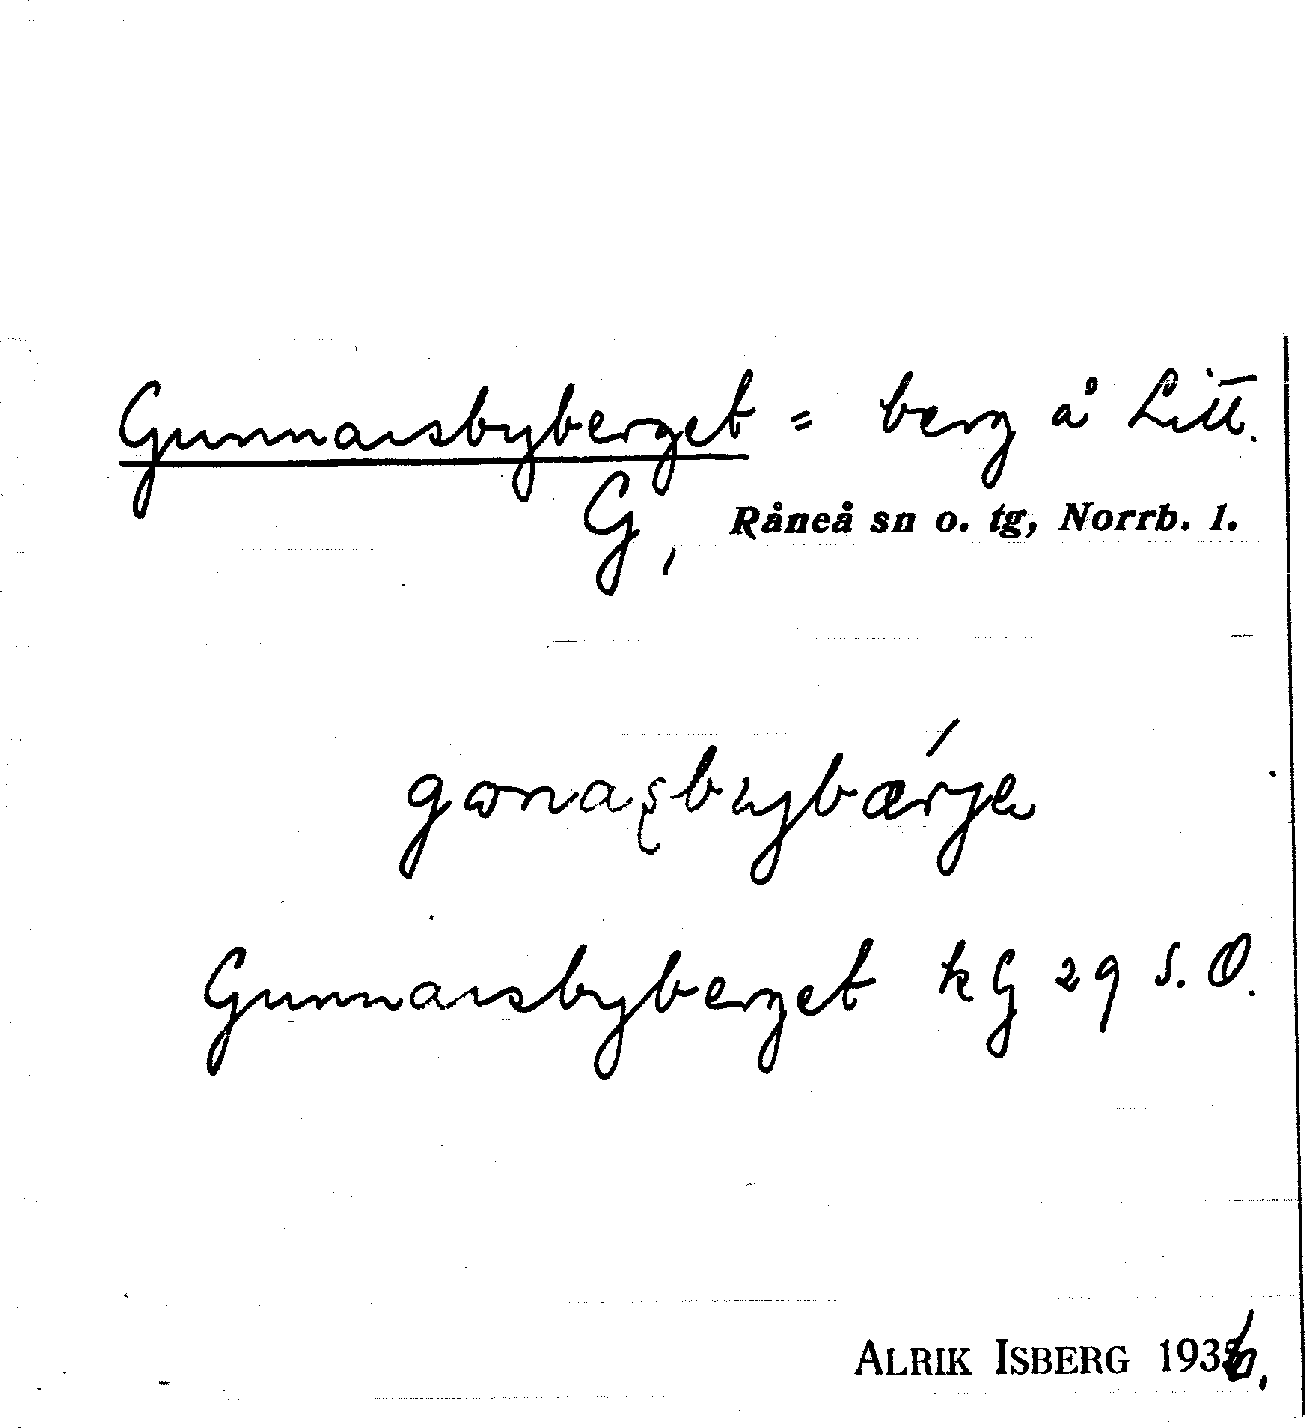 Gunnarsbyberget = berg å Litt.
G, Råneå sn o. tg, Norrb. l.
gɷnaʂbybǽrje
Gunnarsbyberget kG 29 S.O.
ALRIK ISBERG 1936.